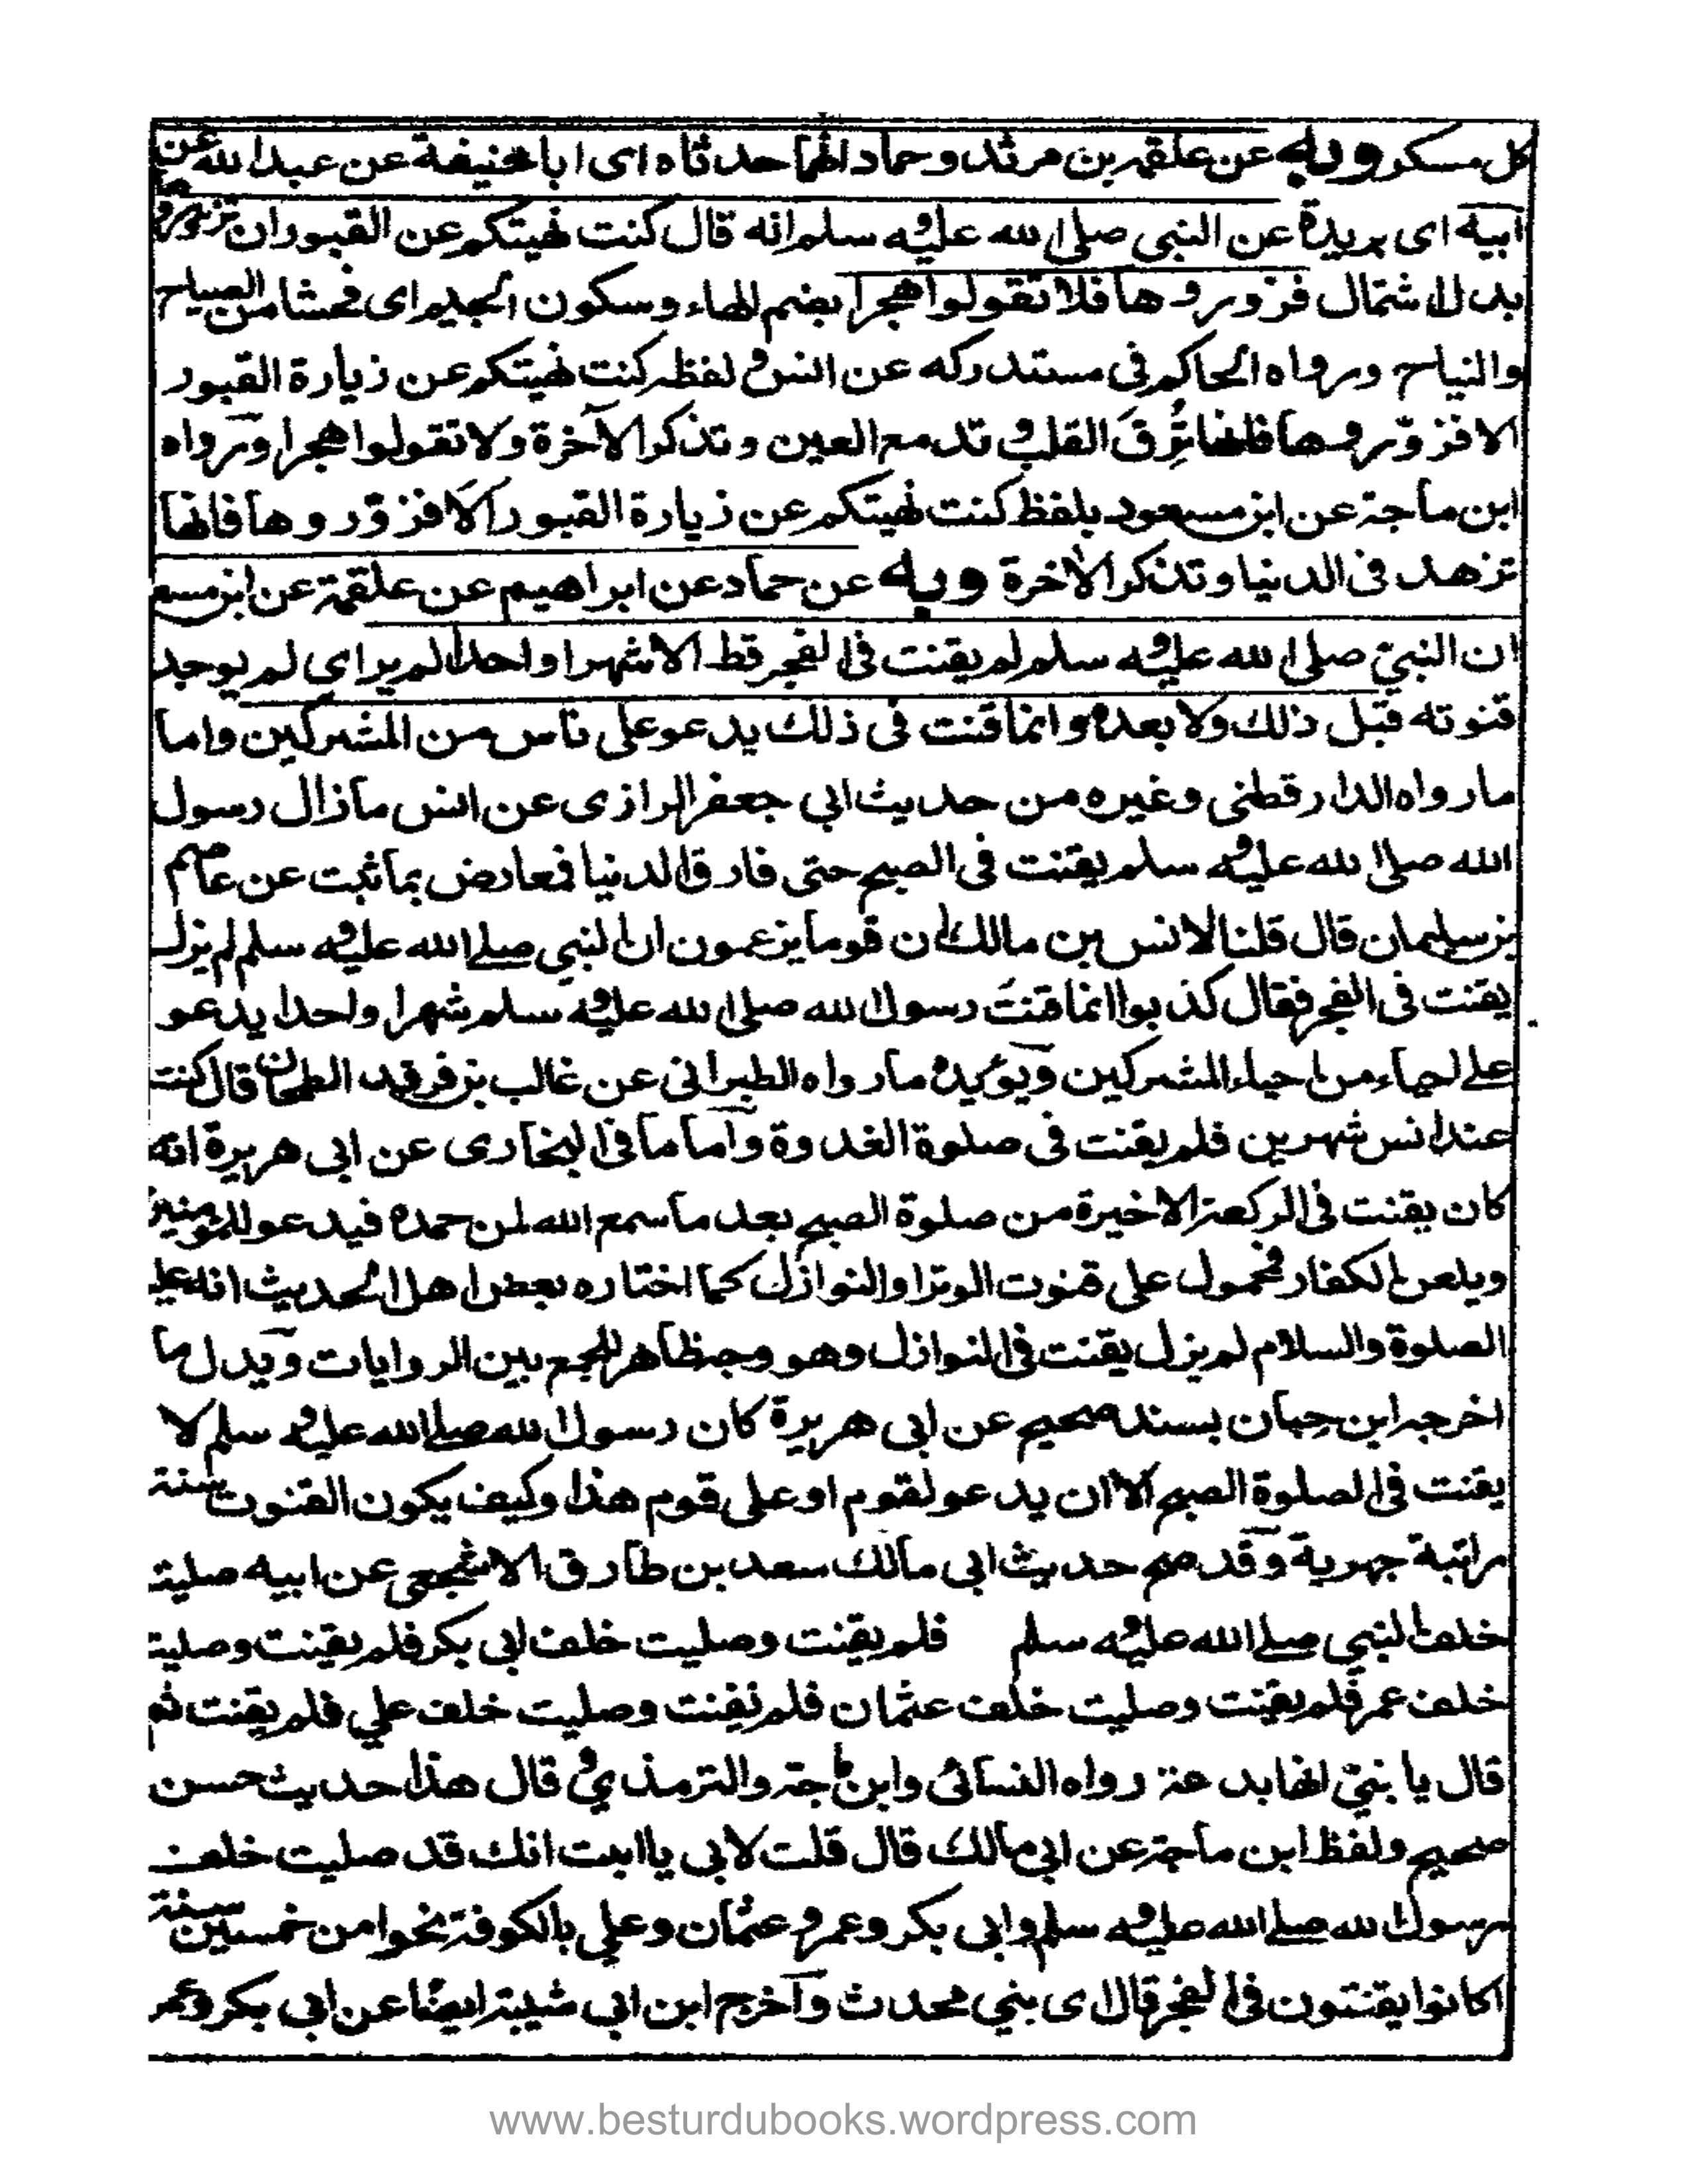 كل مسكر وبه عن علقمة بن مرثد وحماد انهما حدثاه اى ابا حنيفة عن عبد الله عن
ابيه اى بريدة عن النبى صلى الله عليه وسلم انه قال كنت نهيتكم عن القبور ان تزوروها
بدل اشتمال فزوروها فلا تقولوا هجرا بضم الهاء وسكون الجيم اى فحشا من الصياح
والنياح ورواه الحاكم فى مستدركه عن انس ولفظه كنت نهيتكم عن زيارة القبور
الا فزوروها فانها ترق القلب وتدمع العين وتذكر الآخرة ولا تقولوا هجرا ورواه
ابن ماجة عن ابن مسعود بلفظ كنت نهيتكم عن زيارة القبور الا فزوروها فانها
تزهد فى الدنيا وتذكر الآخرة وبه عن حماد عن ابراهيم عن علقمة عن ابن مسع
ان النبى صلى الله عليه وسلم لم يقنت فى الفجر قط الا شهرا واحدا لم ير اى لم يوجد
قنوته قبل ذلك ولا بعده وانما قنت فى ذلك يدعو على ناس من المشركين واما
ما رواه الدارقطنى وغيره من حديث ابى جعفر الرازى عن انس ما زال رسول
الله صلى الله عليه وسلم يقنت فى الصبح حتى فارق الدنيا فمعارض بما ثبت عن عاصم
بن سليمان قال قلنا لانس بن مالك ان قوما يزعمون ان النبى صلى الله عليه وسلم لم يزل
يقنت فى الفجر فقال كذبوا انما قنت رسول الله صلى الله عليه وسلم شهرا واحدا يدعو
على احياء من احياء المشركين ويؤيده ما رواه الطبرانى عن غالب بن فرقد الطحان قال كنت
عند انس شهرين فلم يقنت فى صلوة الغدوة واما ما فى البخارى عن ابى هريرة انه
كان يقنت فى الركعة الاخيرة من صلوة الصبح بعد ما سمع الله لمن حمده فيدعو للمؤمنين
ويلعن الكفار فمحمول على قنوت الوتر او النوازل كما اختاره بعض اهل الحديث انه عليه
الصلوة والسلام لم يزل يقنت فى النوازل وهو وجه ظاهر للجمع بين الروايات ويدل ما
اخرجه ابن حبان بسند صحيح عن ابى هريرة كان رسول الله صلى الله عليه وسلم لا
يقنت فى الصلوة الصبح الا ان يدعو لقوم او على قوم هذا وكيف يكون القنوت سنة
راتبة جهرية وقد صح حديث ابى مالك سعد بن طارق الاشجعى عن ابيه صليت
خلف النبى صلى الله عليه وسلم فلم يقنت وصليت خلف ابى بكر فلم يقنت وصليت
خلف عمر فلم يقنت وصليت خلف عثمان فلم يقنت وصليت خلف على فلم يقنت ثم
قال يا بنى انها بدعة رواه النسائى وابن ماجة والترمذى وقال هذا حديث حسن
صحيح ولفظ ابن ماجة عن ابى مالك قال قلت لابى يا ابت انك قد صليت خلف
رسول الله صلى الله عليه وسلم وابى بكر وعمر وعثمان وعلى بالكوفة نحوا من خمسين سنة
اكانوا يقنتون فى الفجر قال اى بنى محدث واخرج ابن ابى شيبة ايضا عن ابى بكر وعمر
www.besturdubooks.wordpress.com